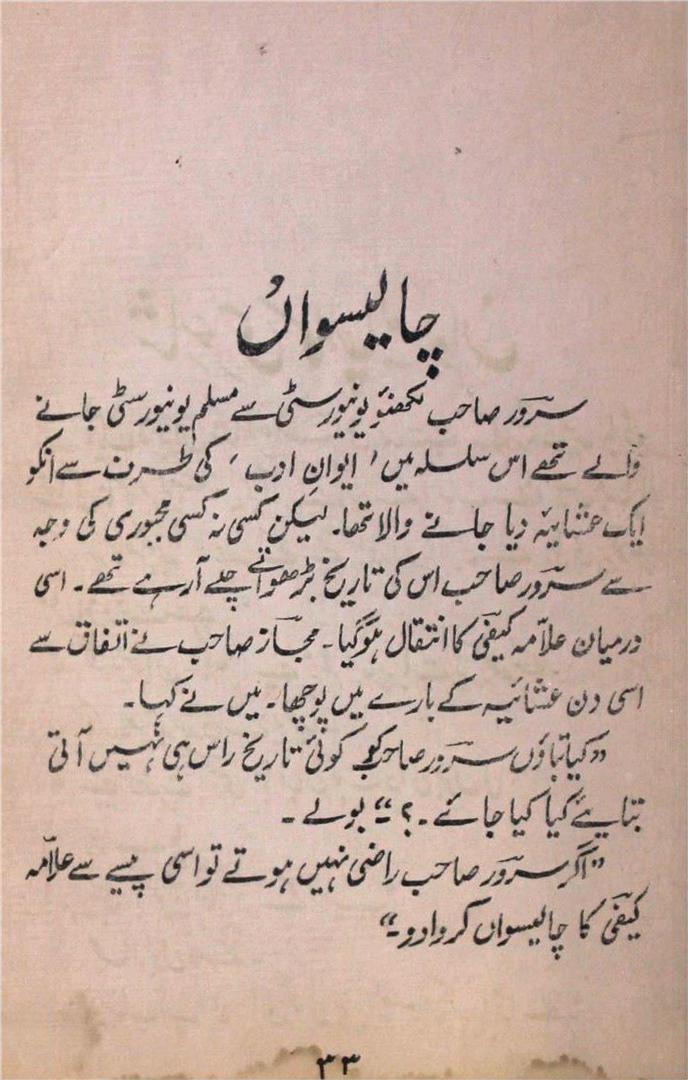 چالیسواں
سرور صاحب لکھنؤ یونیورسٹی سے مسلم یونیورسٹی جانے
والے تھے اس سلسلہ میں ’ ایوانِ ادب ‘ کی طرف سے انکو
ایک عشائیہ دیا جانے والا تھا۔ لیکن کسی نہ کسی مجبوری کی وجہ
سے سرور صاحب اس کی تاریخ بڑھواتے چلے آرہے تھے۔ اسی
درمیان علامہ کیفی کا انتقال ہوگیا۔ مجاز صاحب نے اتفاق سے
اسی دن عشائیہ کے بارے میں پوچھا۔ میں نے کہا۔
”کیا بتاؤں سرور صاحب کو کوئی تاریخ راس ہی نہیں آتی
بتایئے کیا کیا جائے۔ ؟“ بولے۔
”اگر سرور صاحب راضی نہیں ہوتے تو اسی پیسے سے علامہ
کیفی کا چالیسواں کروا دو۔“
۳۳